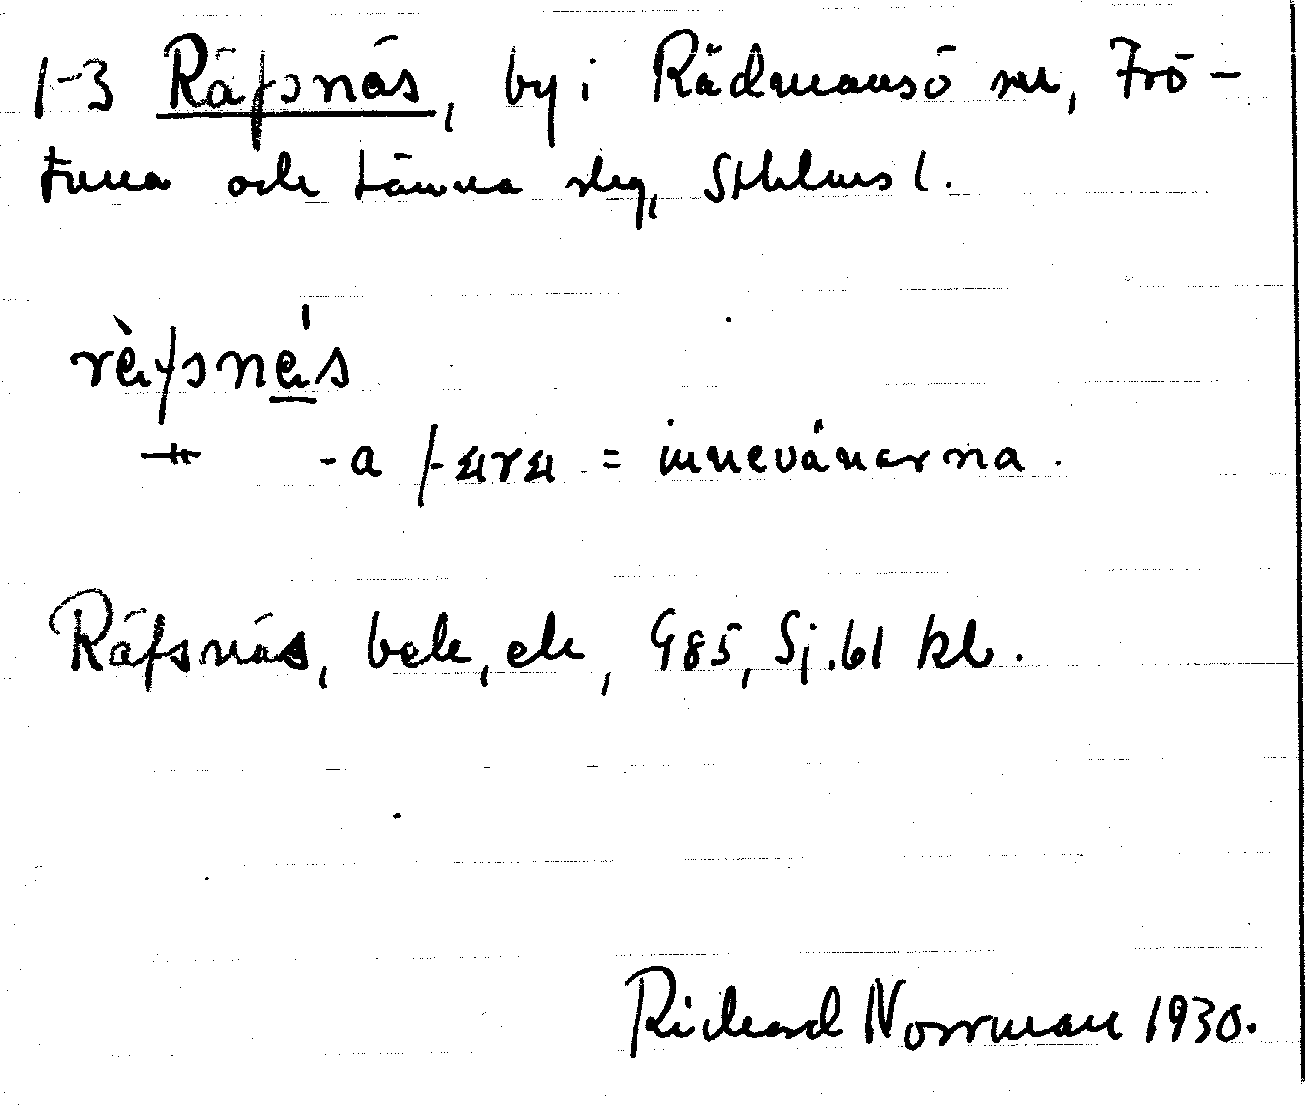 1-3 Räfsnäs, by i Rådmansö sn, Frö-
tuna och Länna slg, Sthlms l.
ræ̀fsnǽ̲s
-a /-ara = innevånarna.
Räfsnäs, bek, ek, G85, Sj. 61 kb.
Richard Norrman 1930.